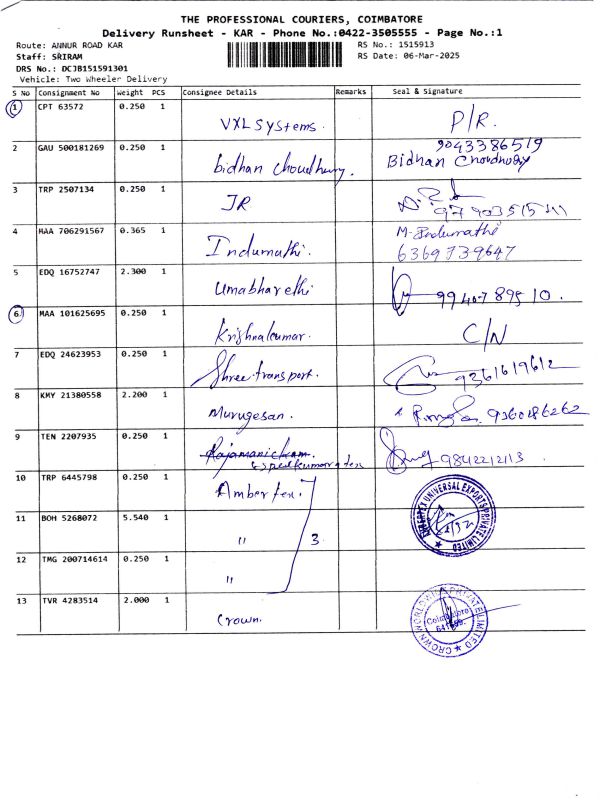 THE PROFESSIONAL COURIERS, COIMBATORE
Delivery Runsheet - KAR - Phone No.:0422-3505555 - Page No.:1
Route: ANNUR ROAD KAR
RS No.: 1515913
Staff: SRIRAM
RS Date: 06-Mar-2025
DRS No.: DCJB151591301
Vehicle: Two Wheeler Delivery
S No Consignment No Weight PCS Consignee Details Remarks Seal & Signature
1 CPT 63572 0.250 1 VXL Systems. P/R.
2 GAU 500181269 0.250 1 bidhan choudhury. 9043386519 Bidhan Choudhury
3 TRP 2507134 0.250 1 JR
4 MAA 706291567 0.365 1 Indumathi. M. Indumathi 6369739647
5 EDQ 16752747 2.300 1 Umabharathi
6 MAA 101625695 0.250 1 Krishnakumar. C/N
7 EDQ 24623953 0.250 1 Shree transport. 9361619612
8 KMY 21380558 2.200 1 Murugesan. 9360186262
9 TEN 2207935 0.250 1
10 TRP 6445798 0.250 1 Amber tex.
11 BOH 5268072 5.540 1 " 3
12 TMG 200714614 0.250 1 "
13 TVR 4283514 2.000 1 Crown.
EMBERTEX UNIVERSAL EXPORTS PRIVATE LIMITED
CROWNWORLDWIDE PRIVATE LIMITED
Coimbatore